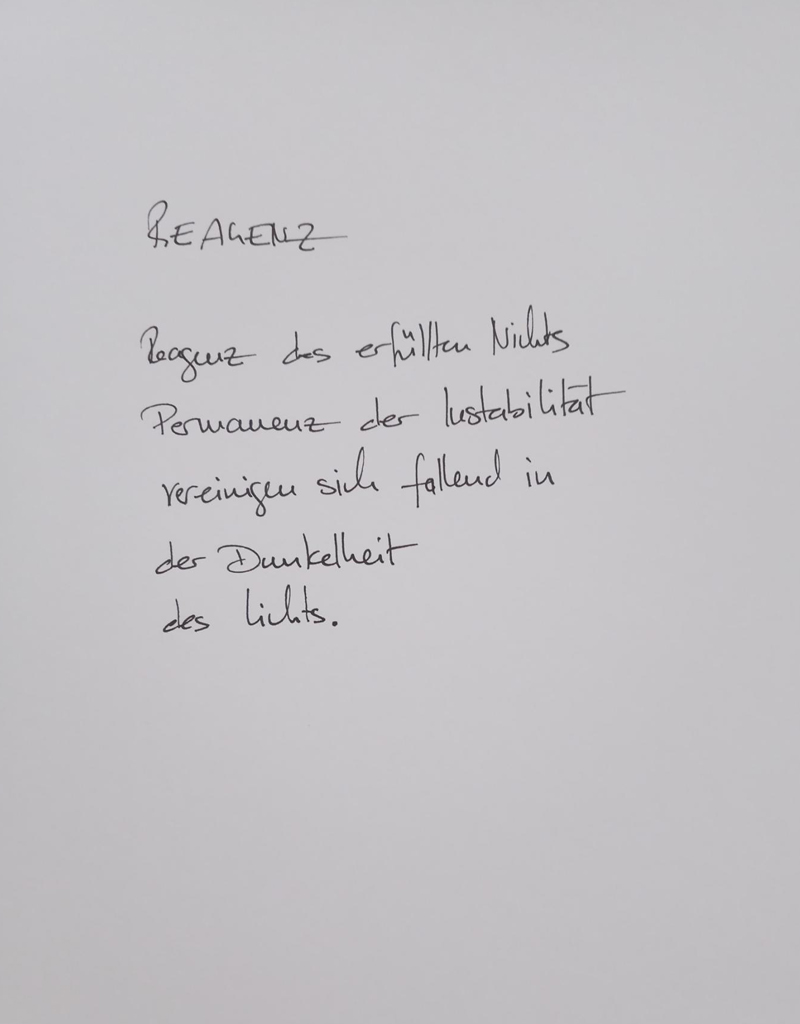 REAGENZ
Reagenz des erfüllten Nichts
Permanenz der Instabilität
vereinigen sich fallend in
der Dunkelheit
des Lichts.